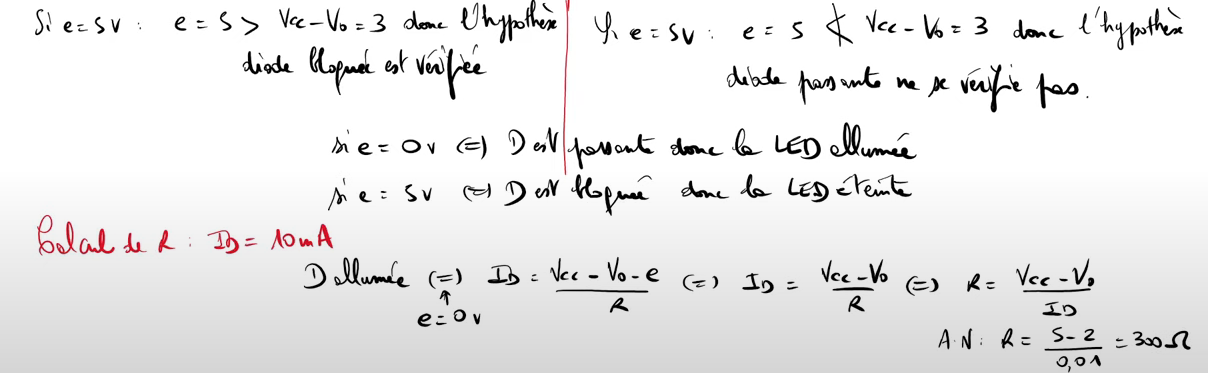 Si e = 5V : e = 5 > Vcc - V₀ = 3 donc l'hypothèse
diode bloquée est vérifiée
Si e = 5V : e = 5 ≮ Vcc - V₀ = 3 donc l'hypothèse
diode passante ne se vérifie pas.
si e = 0V (=) D est passante donc la LED allumée
si e = 5V (=) D est bloquée donc la LED éteinte
Calcul de R : ID = 10mA
D allumée (=) ID = (Vcc - V₀ - e) / R (=) ID = (Vcc - V₀) / R (=) R = (Vcc - V₀) / ID
↑
e = 0V
A.N : R = (5 - 2) / 0,01 = 300Ω